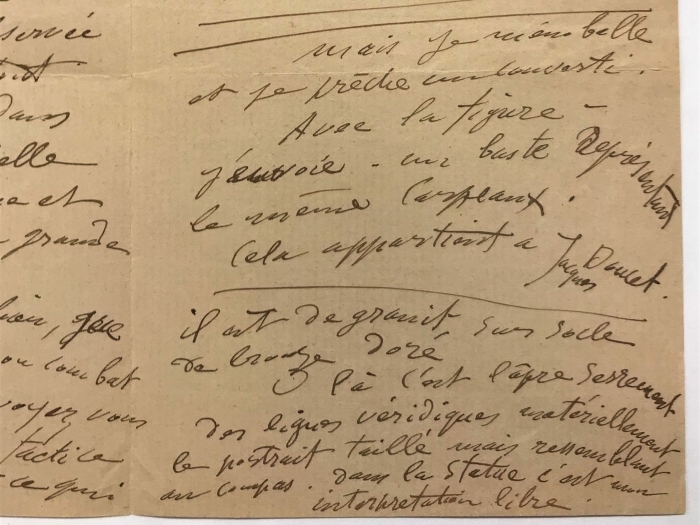 servée
Dans
elle
e et
grande
bien, que
ou combat
voyez vous
tactice
ce qui
mais je m'emballe
et je prêche un converti.
Avec la figure -
j'envoie - un buste Représentant
le même Carpeaux.
Cela appartient a Jacques Doucet.
il est de granit, sur socle
de bronze doré
là c'est l'âpre serrement
des lignes véridiques matériellement
le portrait taillé mais ressemblant
au compas. dans la statue c'est mon
interpretation libre.